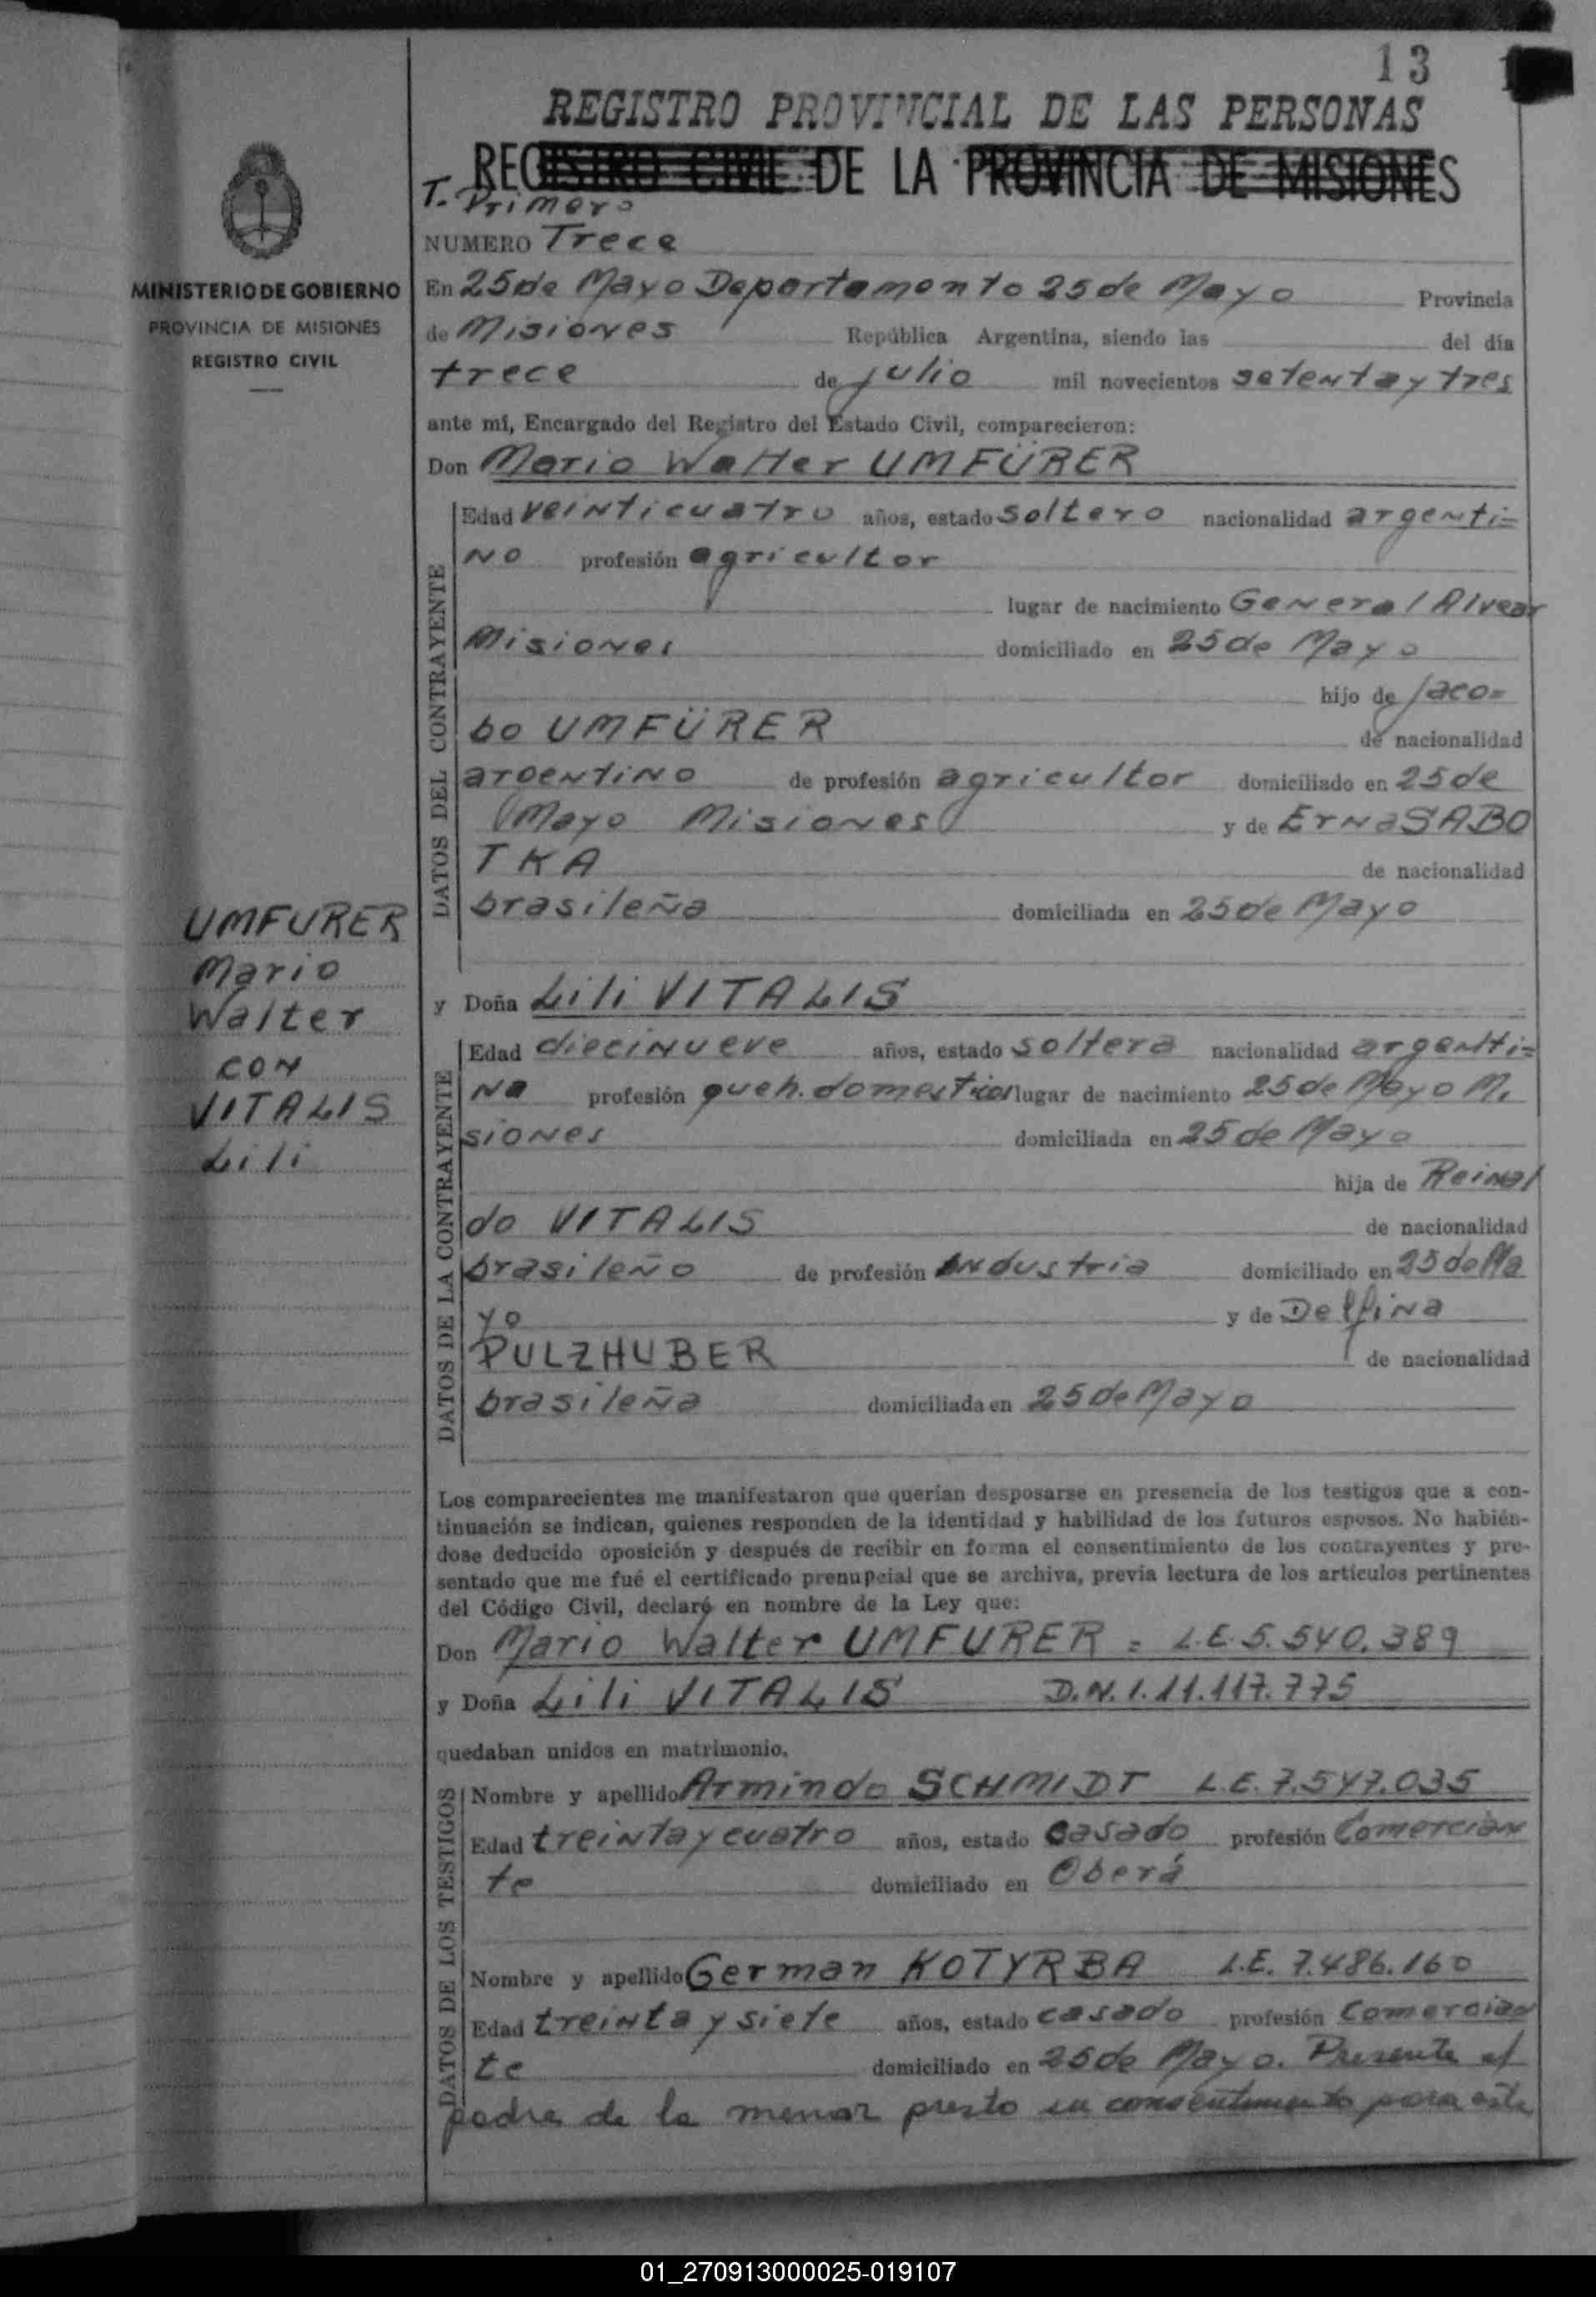 13
REGISTRO PROVINCIAL DE LAS PERSONAS
REGISTRO CIVIL DE LA PROVINCIA DE MISIONES
T. Primero
NUMERO Trece
MINISTERIO DE GOBIERNO
PROVINCIA DE MISIONES
REGISTRO CIVIL
En 25 de Mayo Departamento 25 de Mayo Provincia
de Misiones República Argentina, siendo las del día
trece de julio mil novecientos setenta y tres
ante mí, Encargado del Registro del Estado Civil, comparecieron:
Don Mario Walter UMFÜRER
DATOS DEL CONTRAYENTE
Edad veinticuatro años, estado soltero nacionalidad argenti=
no profesión agricultor
lugar de nacimiento General Alvear
Misiones domiciliado en 25 de Mayo
hijo de Jaco=
bo UMFÜRER de nacionalidad
argentino de profesión agricultor domiciliado en 25 de
Mayo Misiones y de Erna SABO
TKA de nacionalidad
brasileña domiciliada en 25 de Mayo
UMFURER
Mario
Walter
CON
VITALIS
Lili
y Doña Lili VITALIS
DATOS DE LA CONTRAYENTE
Edad diecinueve años, estado soltera nacionalidad argenti=
na profesión queh. domesticos lugar de nacimiento 25 de Mayo Mi
siones domiciliada en 25 de Mayo
hija de Reinal
do VITALIS de nacionalidad
brasileño de profesión industria domiciliado en 25 de Ma
yo y de Delfina
PULZHUBER de nacionalidad
brasileña domiciliada en 25 de Mayo
Los comparecientes me manifestaron que querían desposarse en presencia de los testigos que a con-
tinuación se indican, quienes responden de la identidad y habilidad de los futuros esposos. No habién-
dose deducido oposición y después de recibir en forma el consentimiento de los contrayentes y pre-
sentado que me fué el certificado prenupcial que se archiva, previa lectura de los artículos pertinentes
del Código Civil, declaré en nombre de la Ley que:
Don Mario Walter UMFURER = L.E. 5.540.389
y Doña Lili VITALIS D.N.I. 11.117.775
quedaban unidos en matrimonio.
DATOS DE LOS TESTIGOS
Nombre y apellido Armindo SCHMIDT L.E. 7.547.035
Edad treinta y cuatro años, estado casado profesión Comercian
te domiciliado en Oberá
Nombre y apellido German KOTYRBA L.E. 7.486.160
Edad treinta y siete años, estado casado profesión Comercian
te domiciliado en 25 de Mayo. Presente el
padre de la menor presto su consentimiento para este
01_270913000025-019107